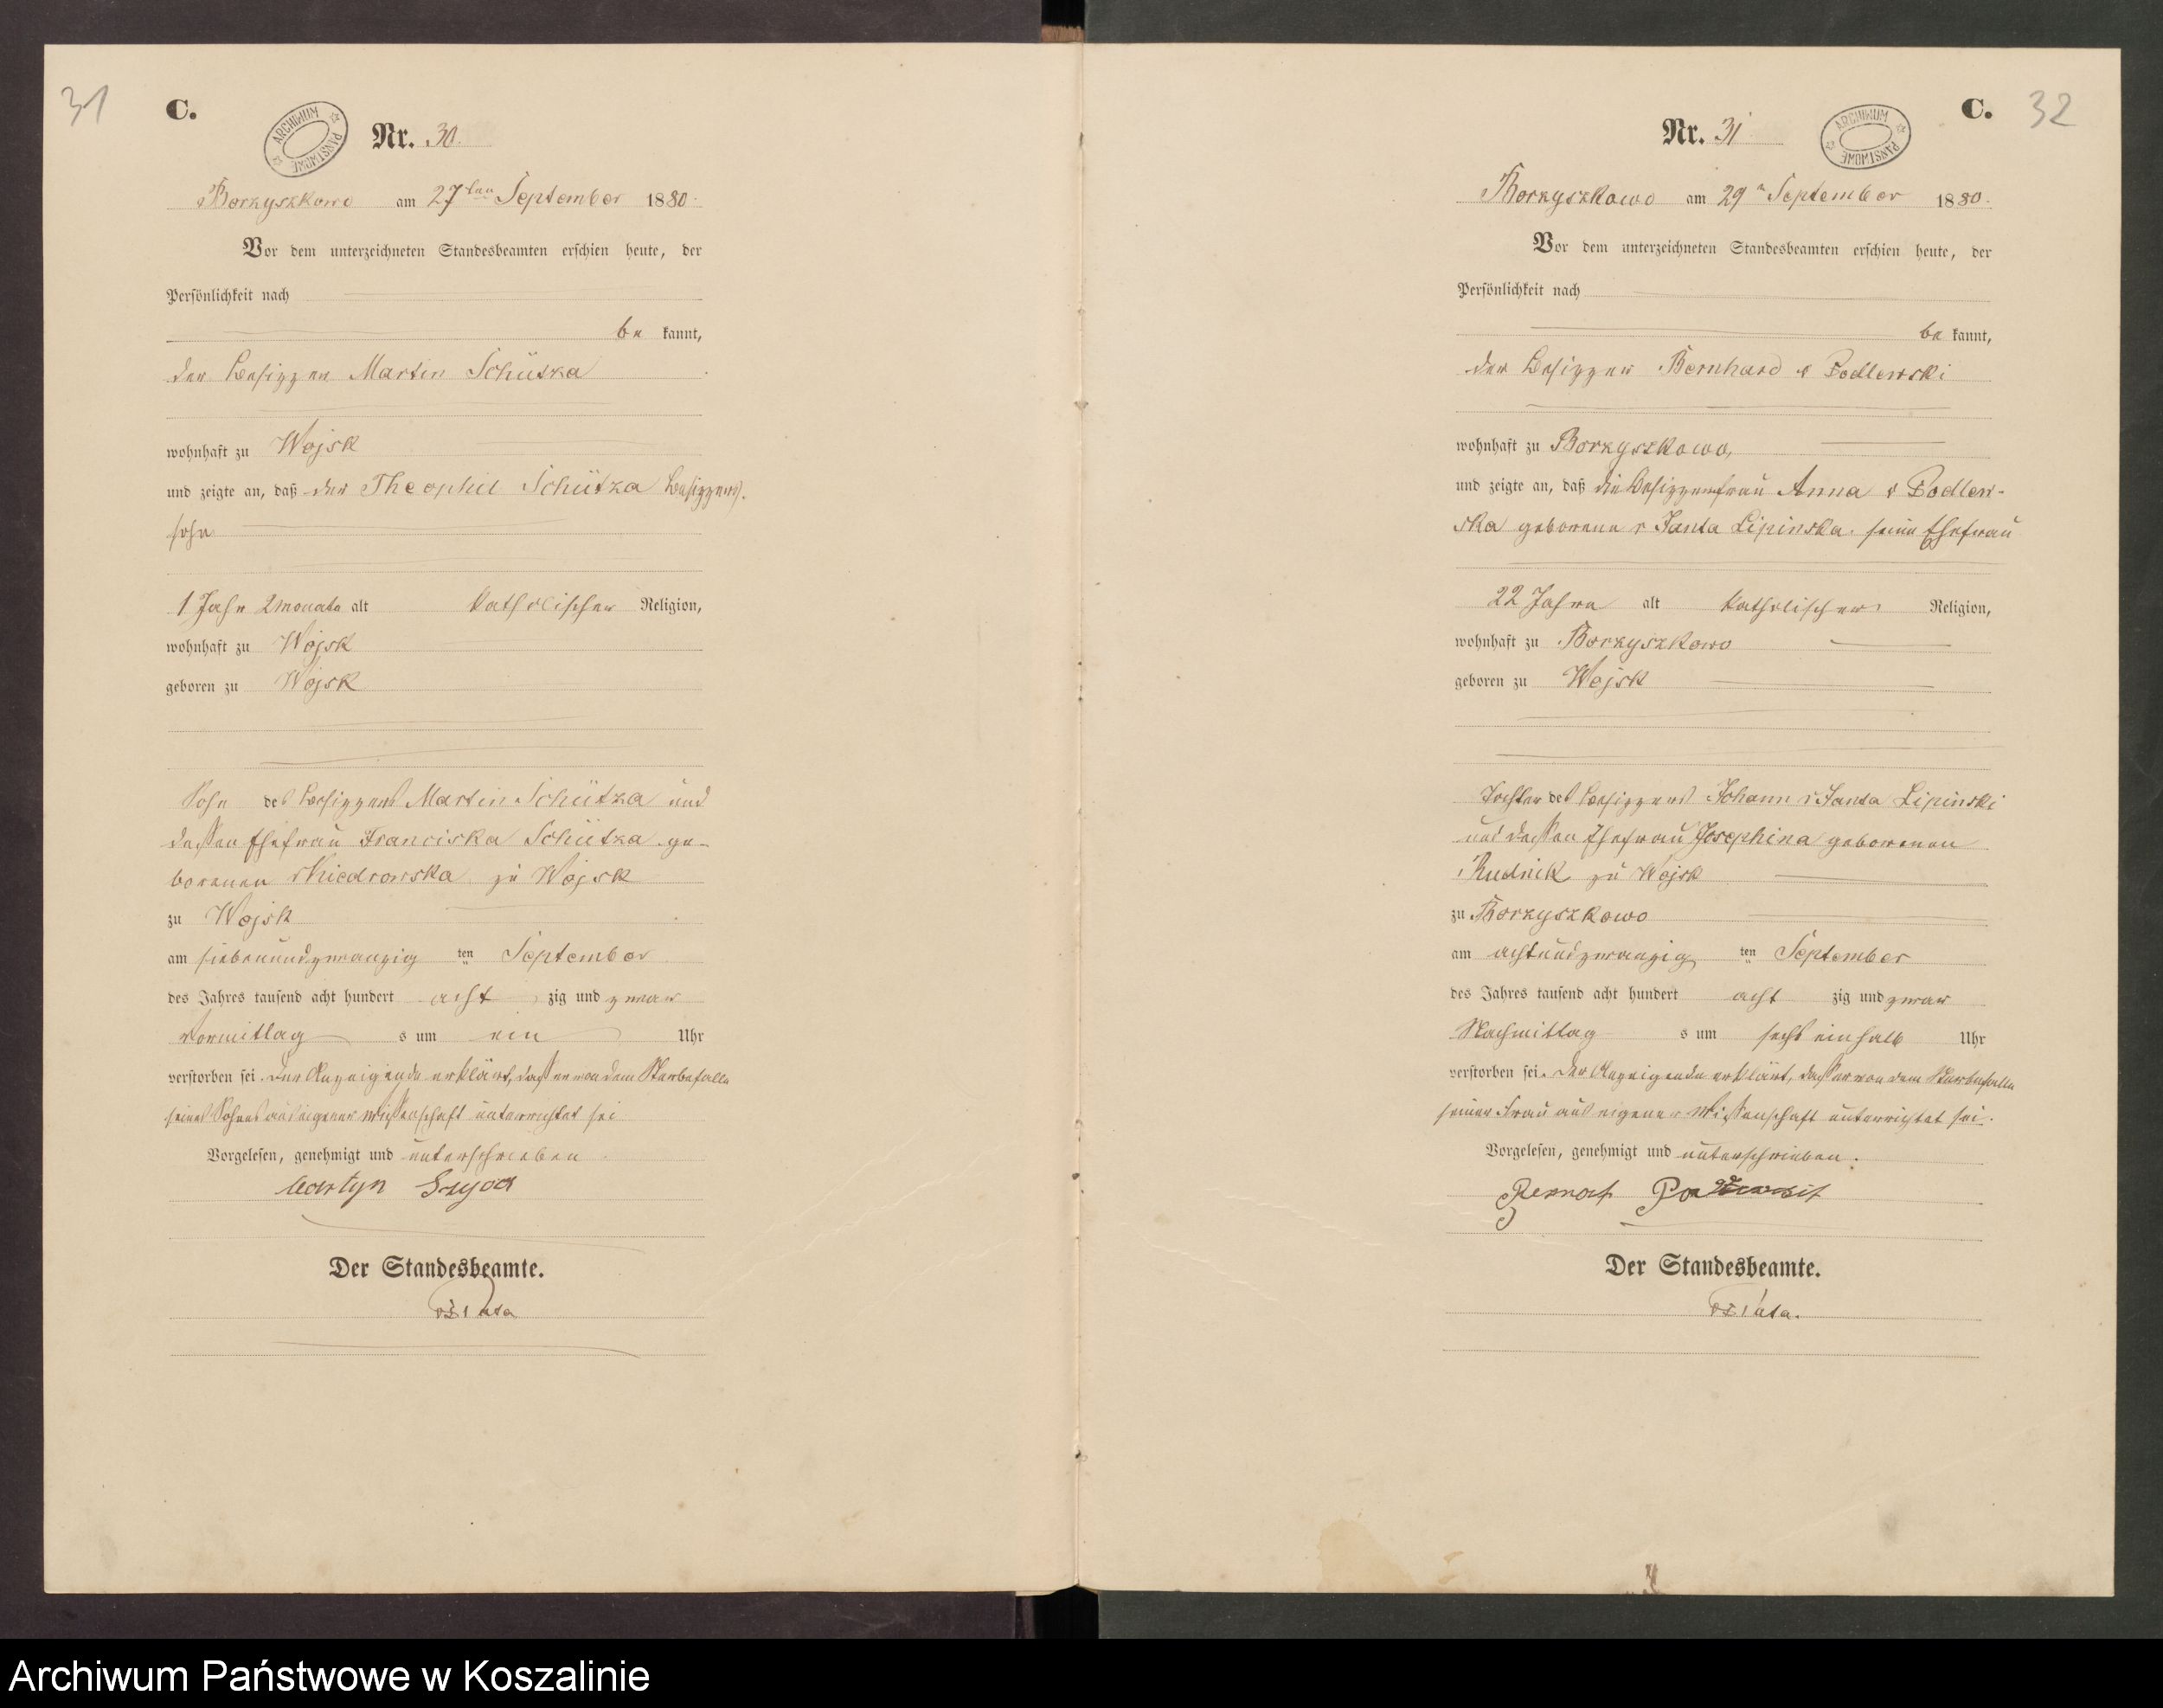 31
C.
ARCHIWUM PAŃSTWOWE
Nr. 30.
Borzyszkowo am 27ten September 1880.
Vor dem unterzeichneten Standesbeamten erschien heute, der
Persönlichkeit nach
be kannt,
der Besitzer Martin Schütza
wohnhaft zu Wojsk
und zeigte an, daß der Theophil Schützka Besitzers
sohn
1 Jahr 2 monate alt katholischer Religion,
wohnhaft zu Wojsk
geboren zu Wojsk
Sohn des Besitzers Martin Schützka und
dessen Ehefrau Franciska Schützka ge-
borenen Niedrowska zu Wojsk
zu Wojsk
am siebenundzwanzig ten September
des Jahres tausend acht hundert acht zig und zwar
Vormittag s um ein Uhr
verstorben sei. Der Anzeigende erklärt, dass er von dem Sterbefalle
seines Sohnes aus eigener Wissenschaft unterrichtet sei
Vorgelesen, genehmigt und unterschrieben
Martyn
Der Standesbeamte.
C. 32
Nr. 31
ARCHIWUM PAŃSTWOWE
Borzyszkowo am 29n September 1880.
Vor dem unterzeichneten Standesbeamten erschien heute, der
Persönlichkeit nach
be kannt,
der Besitzer Bernhard v Podlewski
wohnhaft zu Borzyszkowo,
und zeigte an, daß die Besitzerfrau Anna v Podlew-
ska geborene v Janta Lipinska. seine Ehefrau
22 Jahre alt katholischer Religion,
wohnhaft zu Borzyszkowo
geboren zu Wojsk
Tochter des Besitzers Johann v Janta Lipinski
und dessen Ehefrau Josephina geborenen
v Rudnik zu Wojsk
zu Borzyszkowo
am achtundzwanzig ten September
des Jahres tausend acht hundert acht zig und zwar
Nachmittag s um sechs einhalb Uhr
verstorben sei. Der Anzeigende erklärt, dass er von dem Sterbefalle
seiner Frau aus eigener Wissenschaft unterrichtet sei.
Vorgelesen, genehmigt und unterschrieben.
Der Standesbeamte.
Archiwum Państwowe w Koszalinie